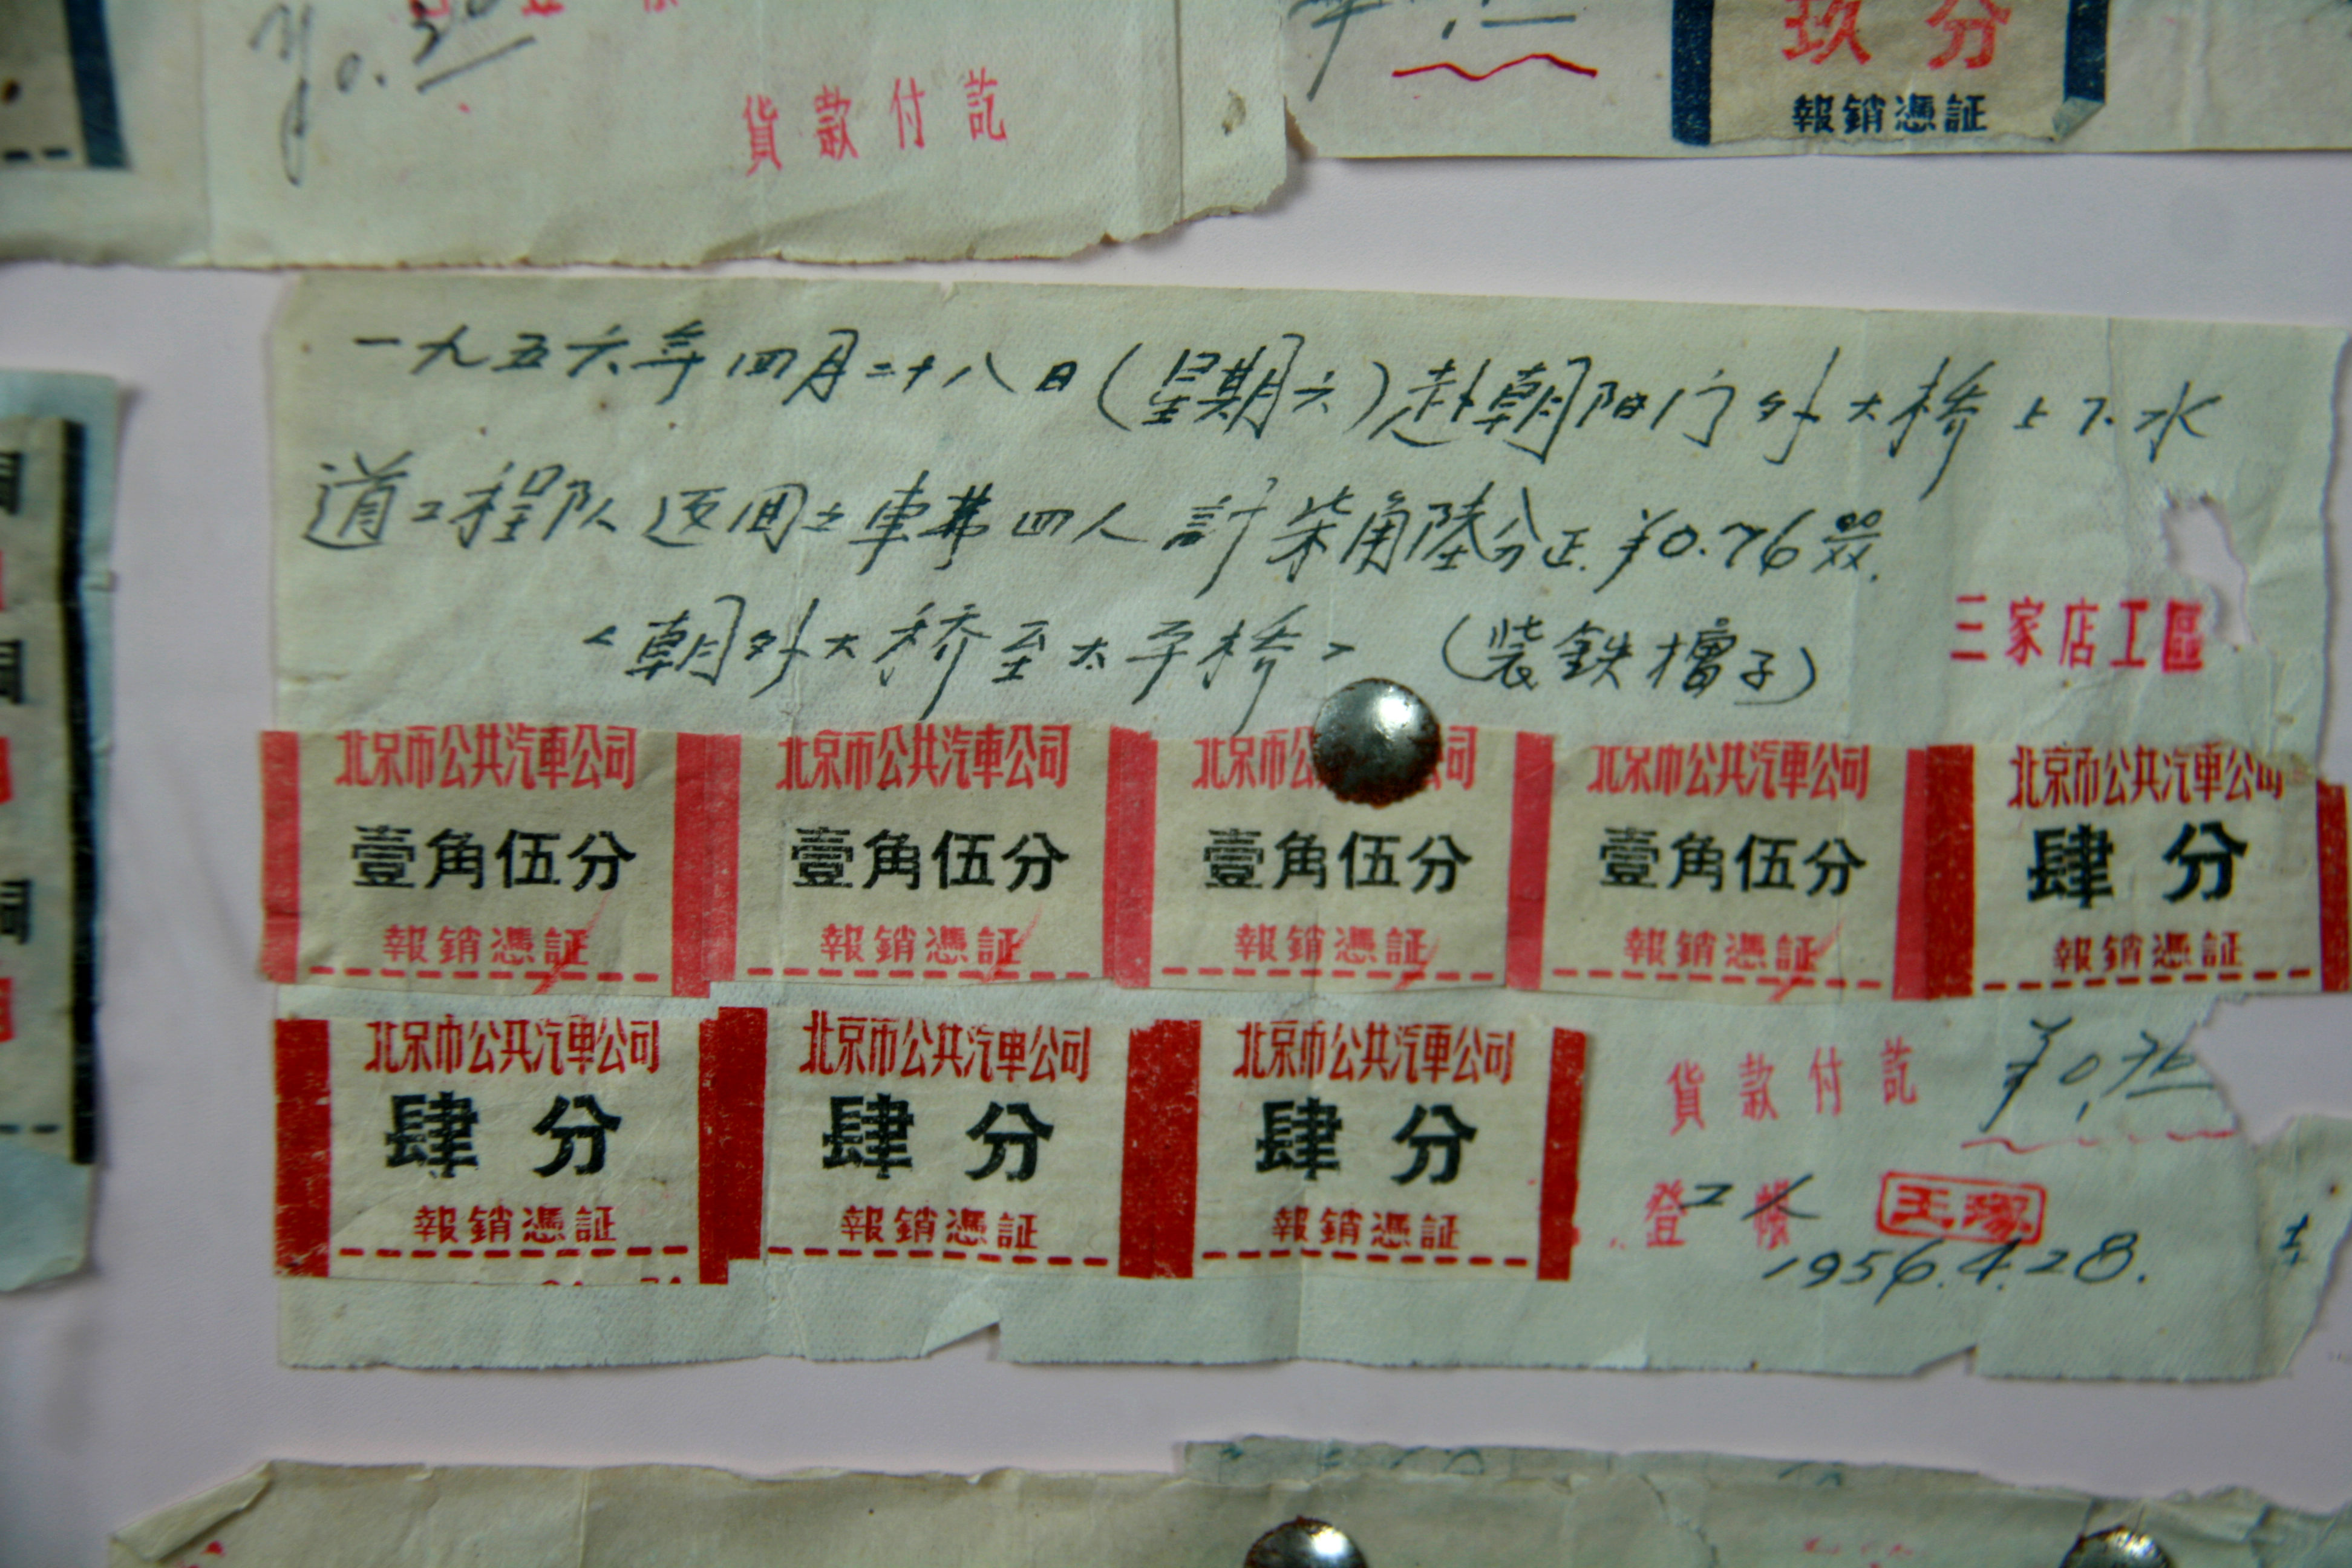 ¥0.30
貨款付訖
玖分
報銷憑証
一九五六年四月二十八日(星期六)赴朝阳门外大桥上下水
道工程队返回之車费四人計柒角陸分正.¥0.76
<朝外大桥至太平桥> (装鉄槽子)
三家店工區
北京市公共汽車公司 北京市公共汽車公司 北京市公共汽車公司 北京市公共汽車公司 北京市公共汽車公司
壹角伍分 壹角伍分 壹角伍分 壹角伍分 肆分
報銷憑証 報銷憑証 報銷憑証 報銷憑証 報銷憑証
北京市公共汽車公司 北京市公共汽車公司 北京市公共汽車公司
肆分 肆分 肆分
報銷憑証 報銷憑証 報銷憑証
貨款付訖 ¥0.76
登帳
1956.4.28.